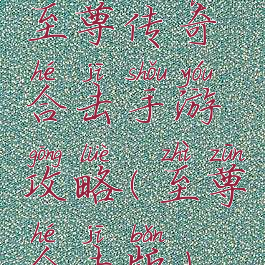 至尊传奇
hé jī shǒu yóu
合击手游
gōng lüè zhì zūn
攻略(至尊
hé jī bǎn
合击版)